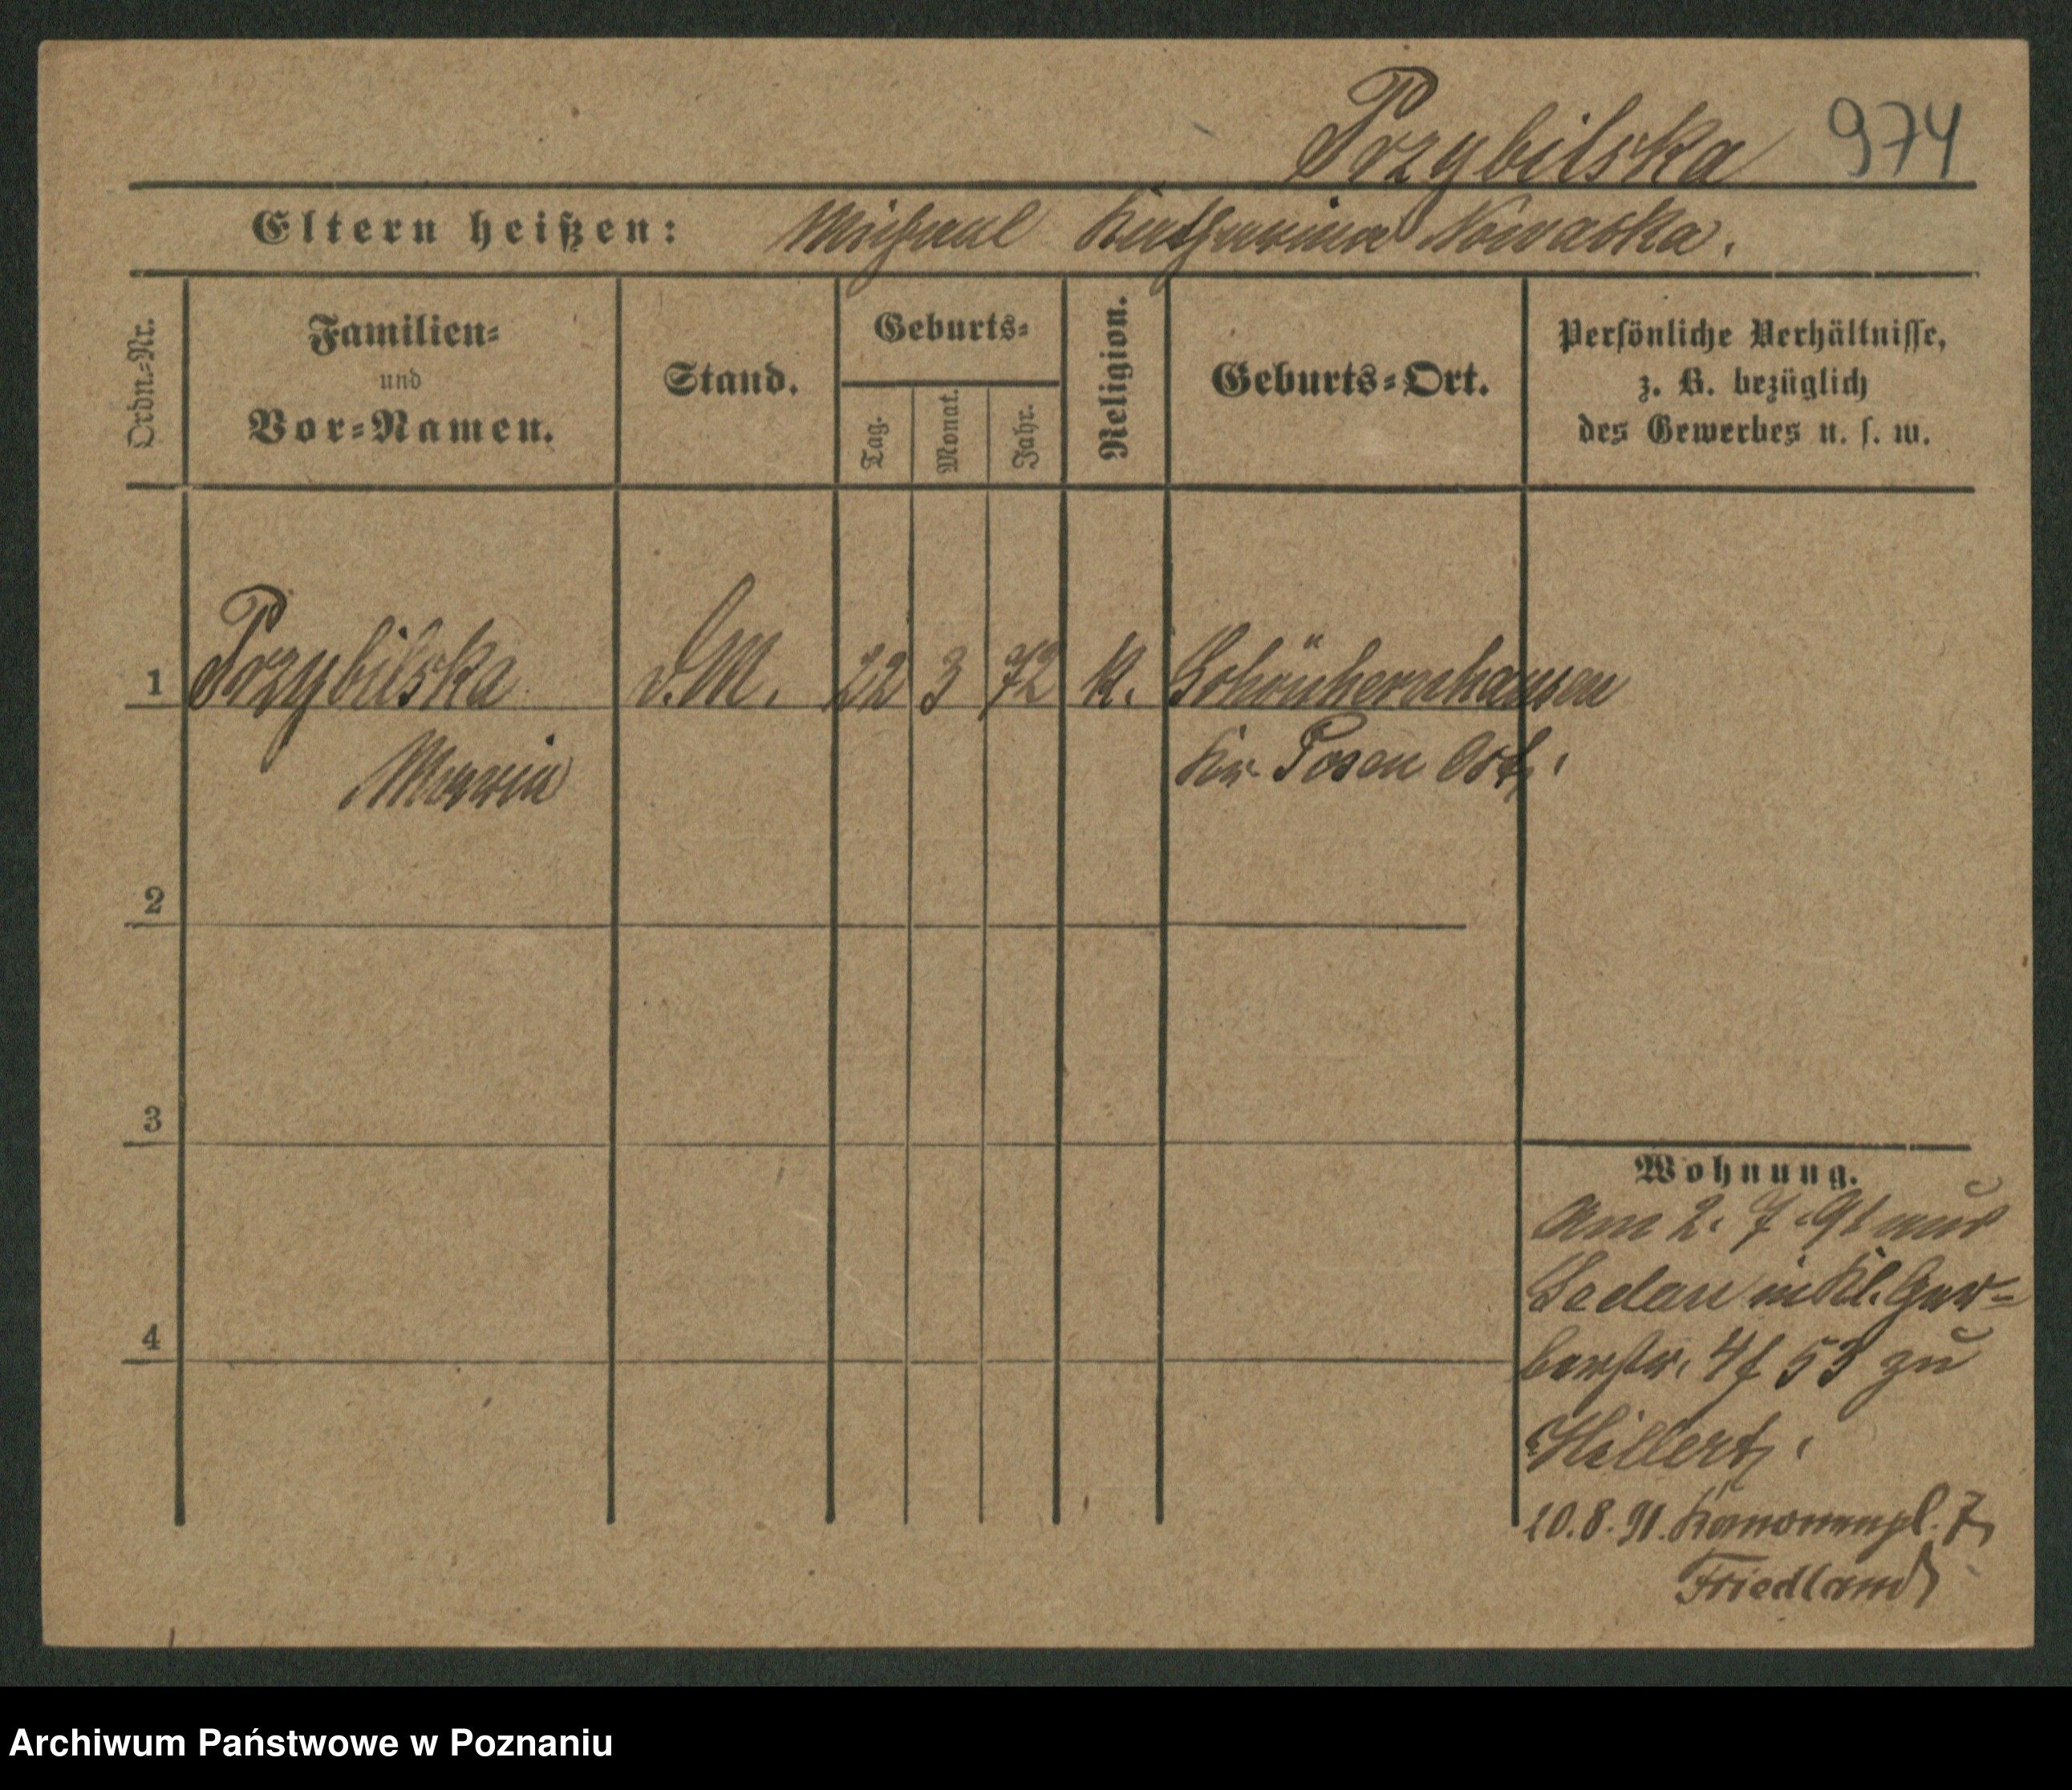 Przybilska 974
Eltern heißen: Michael Katharina Nowacka.
Ordn.-Nr.
Familien-
und
Vor-Namen.
Stand.
Geburts-
Tag.
Monat.
Jahr.
Religion.
Geburts-Ort.
Persönliche Verhältnisse,
z. B. bezüglich
des Gewerbes u. s. w.
1 Przybilska D.M. 22 3 72 K. Schönherrnhausen
Marie Kr. Posen Ost.
2
3
4
Wohnung.
Am 2. 7. 91 aus
Sedan in Kl. Ger-
berstr. 4 f 53 zu
Hillert.
10.8.91. Kanonenpl. 7
Friedland
Archiwum Państwowe w Poznaniu